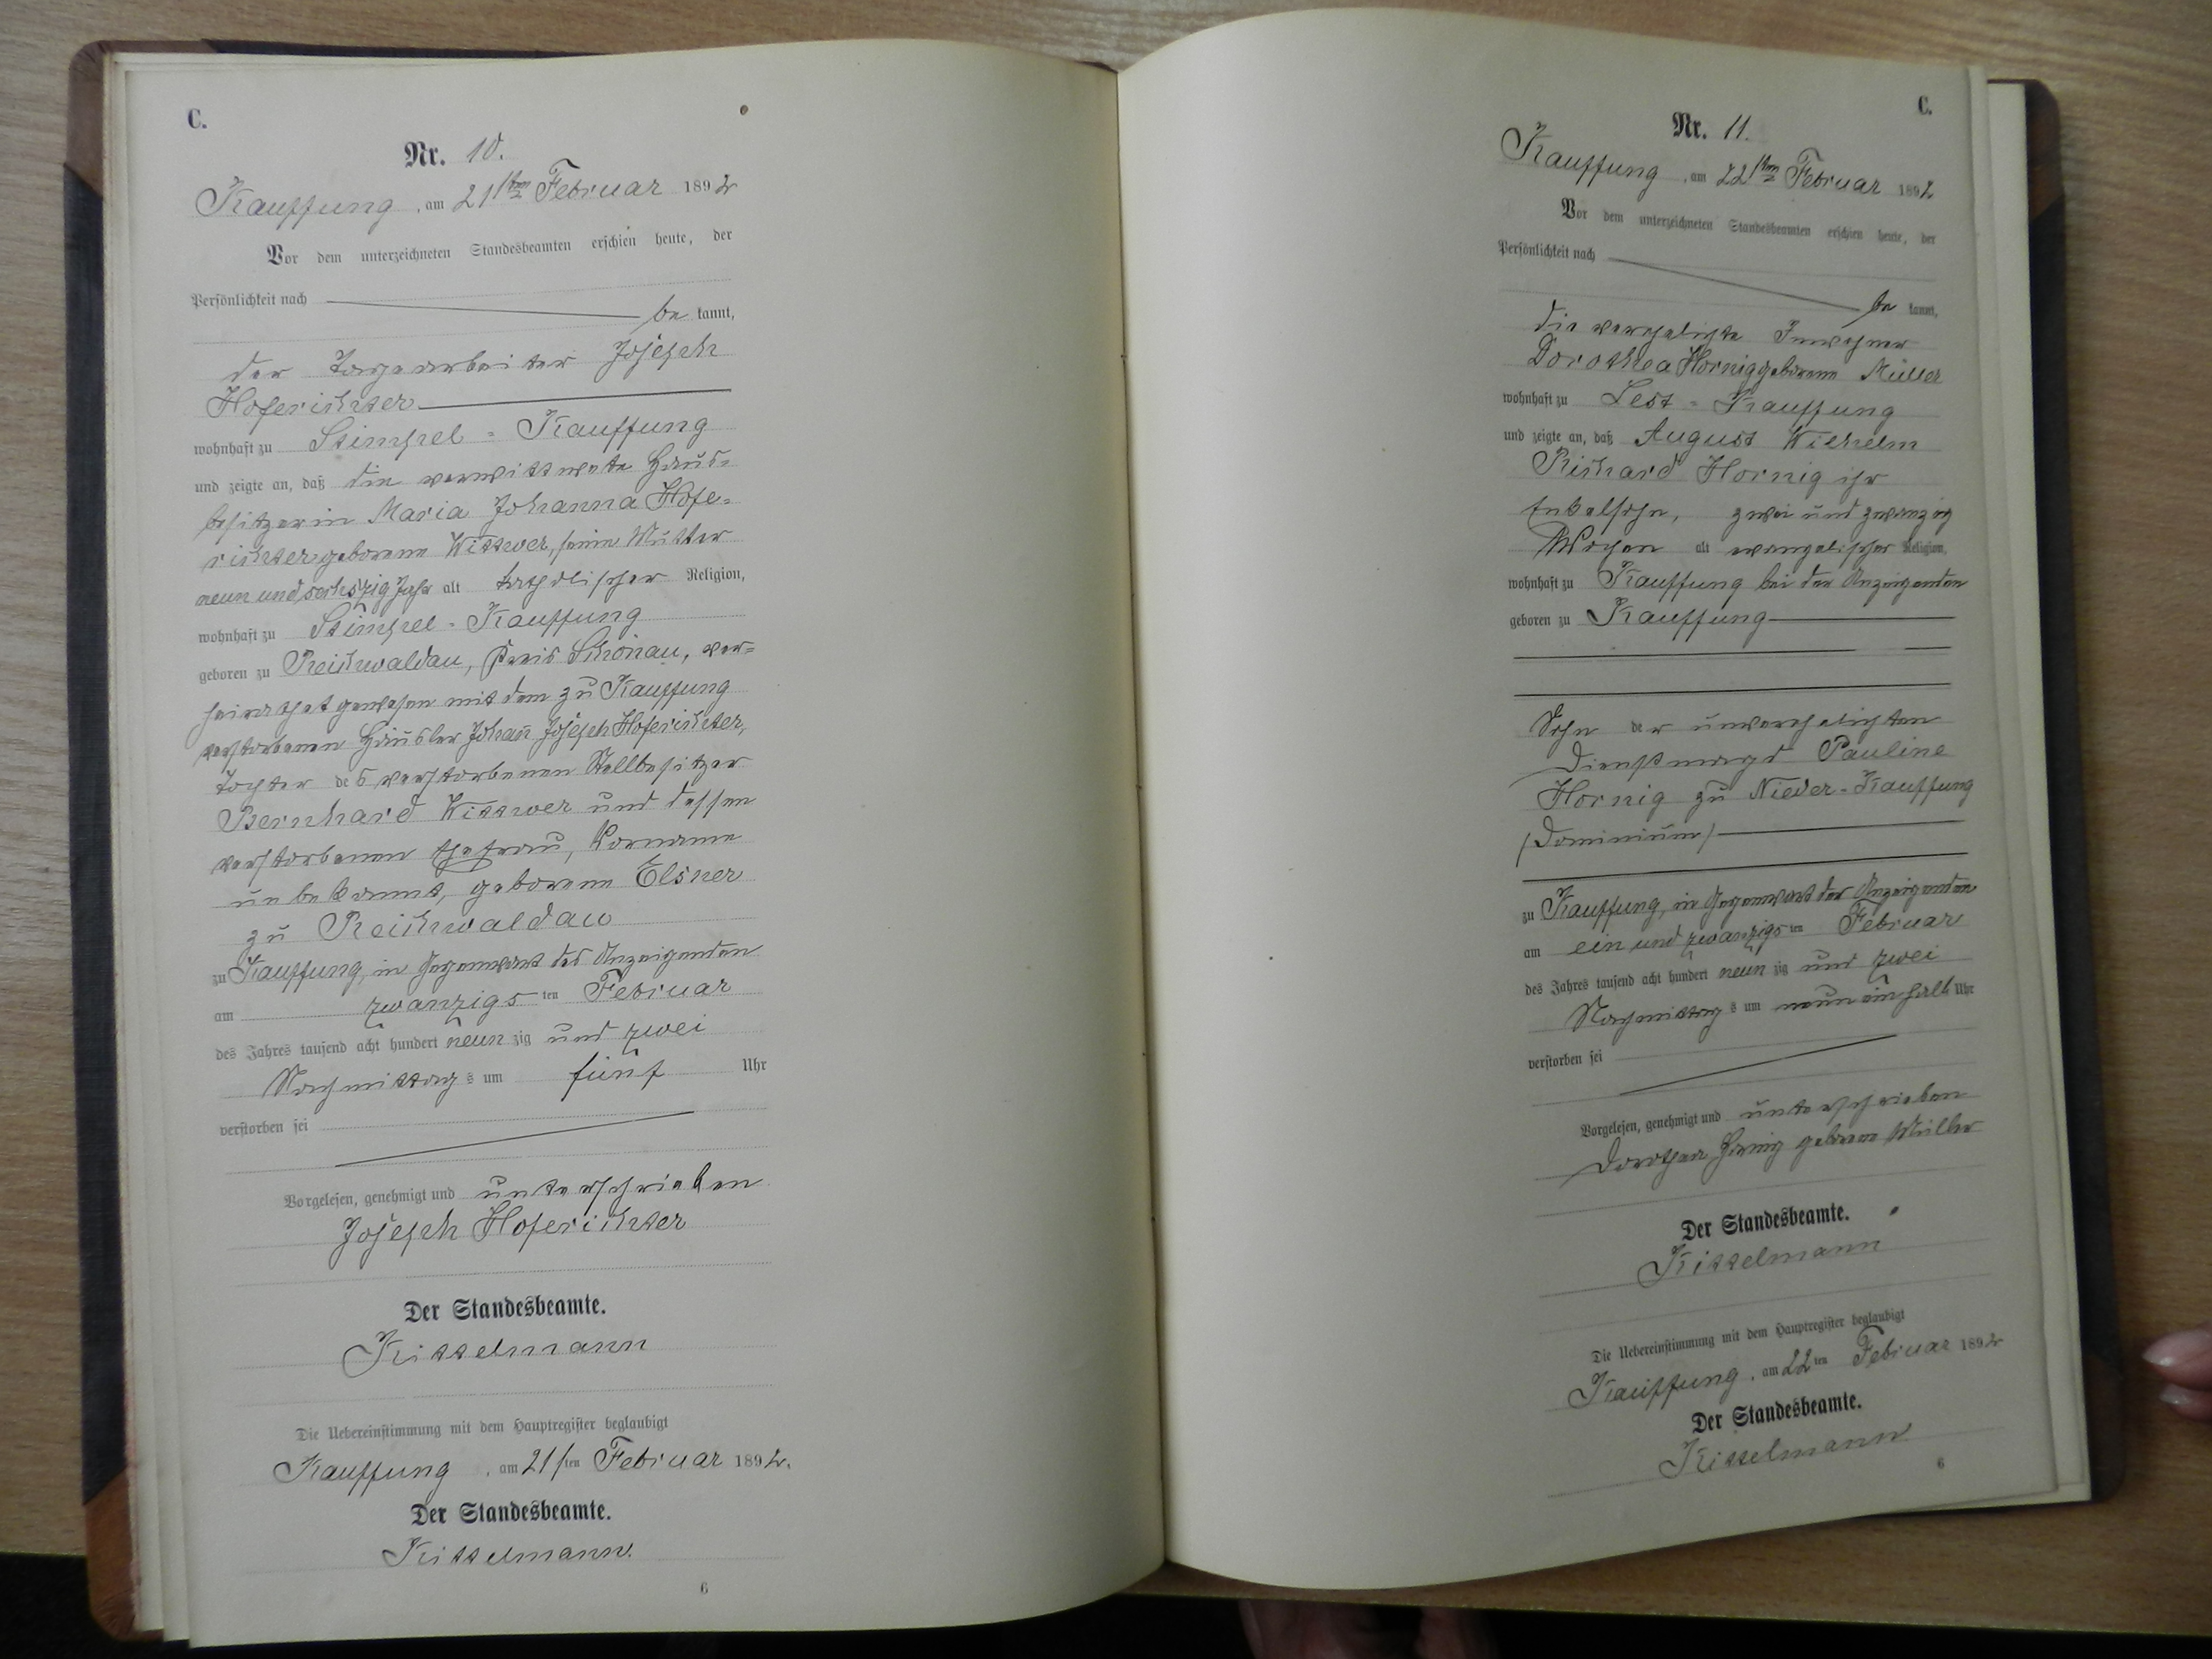 C.
Nr. 10.
Kauffung, am 21ten Februar 1892
Vor dem unterzeichneten Standesbeamten erschien heute, der
Persönlichkeit nach
be kannt,
der Tagearbeiter Joseph
Hoferichter
wohnhaft zu Stimpel-Kauffung
und zeigte an, daß die verwittwete Haus-
besitzerin Maria Johanna Hofe-
richter geborene Wittwer, seine Mutter
neun und sechszig Jahr alt katholischer Religion,
wohnhaft zu Stimpel-Kauffung
geboren zu Reichwaldau, Kreis Schönau, ver-
heirathet gewesen mit dem zu Kauffung
verstorbenen Häusler Johann Joseph Hoferichter,
Tochter des verstorbenen Stellbesitzer
Bernhard Wittwer und dessen
verstorbenen Ehefrau, Vorname
unbekannt, geborene Elsner
zu Reichwaldau
zu Kauffung, in Gegenwart des Anzeigenden
am zwanzigsten Februar
des Jahres tausend acht hundert neunzig und zwei
Nachmittags um fünf Uhr
verstorben sei
Vorgelesen, genehmigt und unterschrieben
Joseph Hoferichter
Der Standesbeamte.
Kittelmann
Die Uebereinstimmung mit dem Hauptregister beglaubigt
Kauffung, am 21ten Februar 1892.
Der Standesbeamte.
Kittelmann.
6
C.
Nr. 11.
Kauffung, am 22ten Februar 1892
Vor dem unterzeichneten Standesbeamten erschien heute, der
Persönlichkeit nach
be kannt,
die verehelichte Inwohner
Dorothea Hornig geborene Müller
wohnhaft zu Lest-Kauffung
und zeigte an, daß August Wilhelm
Richard Hornig ihr
Enkelsohn, zwei und zwanzig
Wochen alt evangelischer Religion,
wohnhaft zu Kauffung bei der Anzeigenden
geboren zu Kauffung
Sohn der unverehelichten
Dienstmagd Pauline
Hornig zu Nieder-Kauffung
/Dominium/
zu Kauffung, in Gegenwart der Anzeigenden
am ein und zwanzigsten Februar
des Jahres tausend acht hundert neunzig und zwei
Nachmittags um neun ein halb Uhr
verstorben sei
Vorgelesen, genehmigt und unterschrieben
Dorothea Hornig geborene Müller
Der Standesbeamte.
Kittelmann
Die Uebereinstimmung mit dem Hauptregister beglaubigt
Kauffung, am 22ten Februar 1892
Der Standesbeamte.
Kittelmann
6